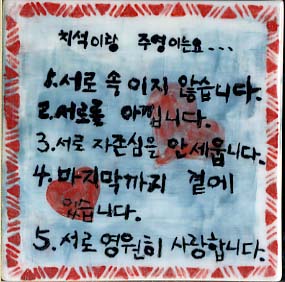 치석이랑 주영이는요...
1. 서로 속이지 않습니다.
2. 서로를 아낍니다.
3. 서로 자존심은 안세웁니다.
4. 마지막까지 곁에
있습니다.
5. 서로 영원히 사랑합니다.